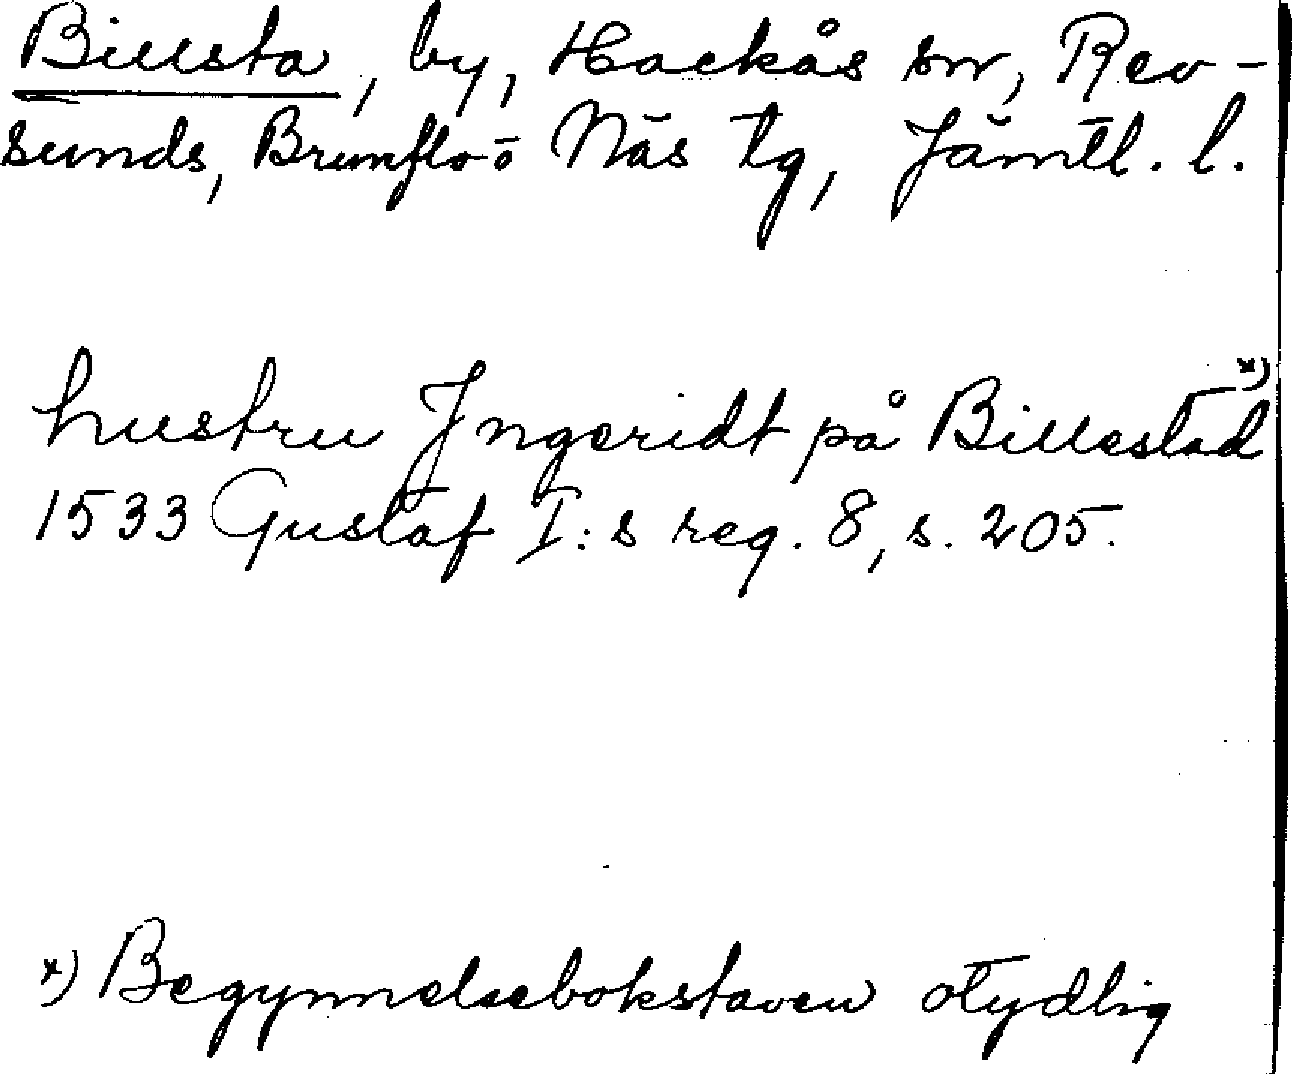 Billsta, by, Hackås sn, Rev-
sunds, Brunflo o Näs tg, Jämtl. l.
hustru Jngeridt på Billestad x)
1533 Gustaf I:s reg. 8, s. 205.
x) Begynnelsebokstaven otydlig